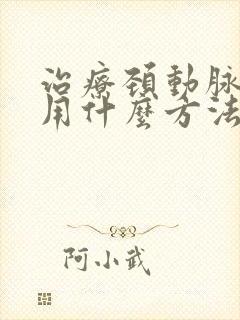 治療頚動脉
用什麼方法
阿小武